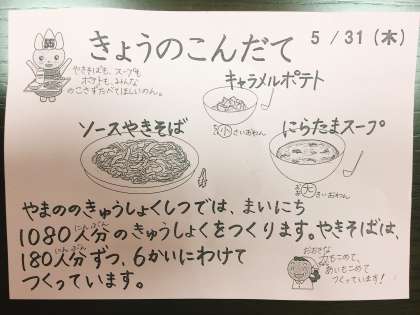 きょうのこんだて
5/31(木)
55
やきそばも、スープも
ポテトも、みんな
のこさずたべてほしいのん。
キャラメルポテト
小さいおわん
ソースやきそば
にらたまスープ
大きいおわん
やまののきゅうしょくしつでは、まいにち
1080人分のきゅうしょくをつくります。やきそばは、
180人分ずつ、6かいにわけて
つくっています。
にんぶん
にんぶん
おおきな
力もこめて、
あいもこめて
つくっています!